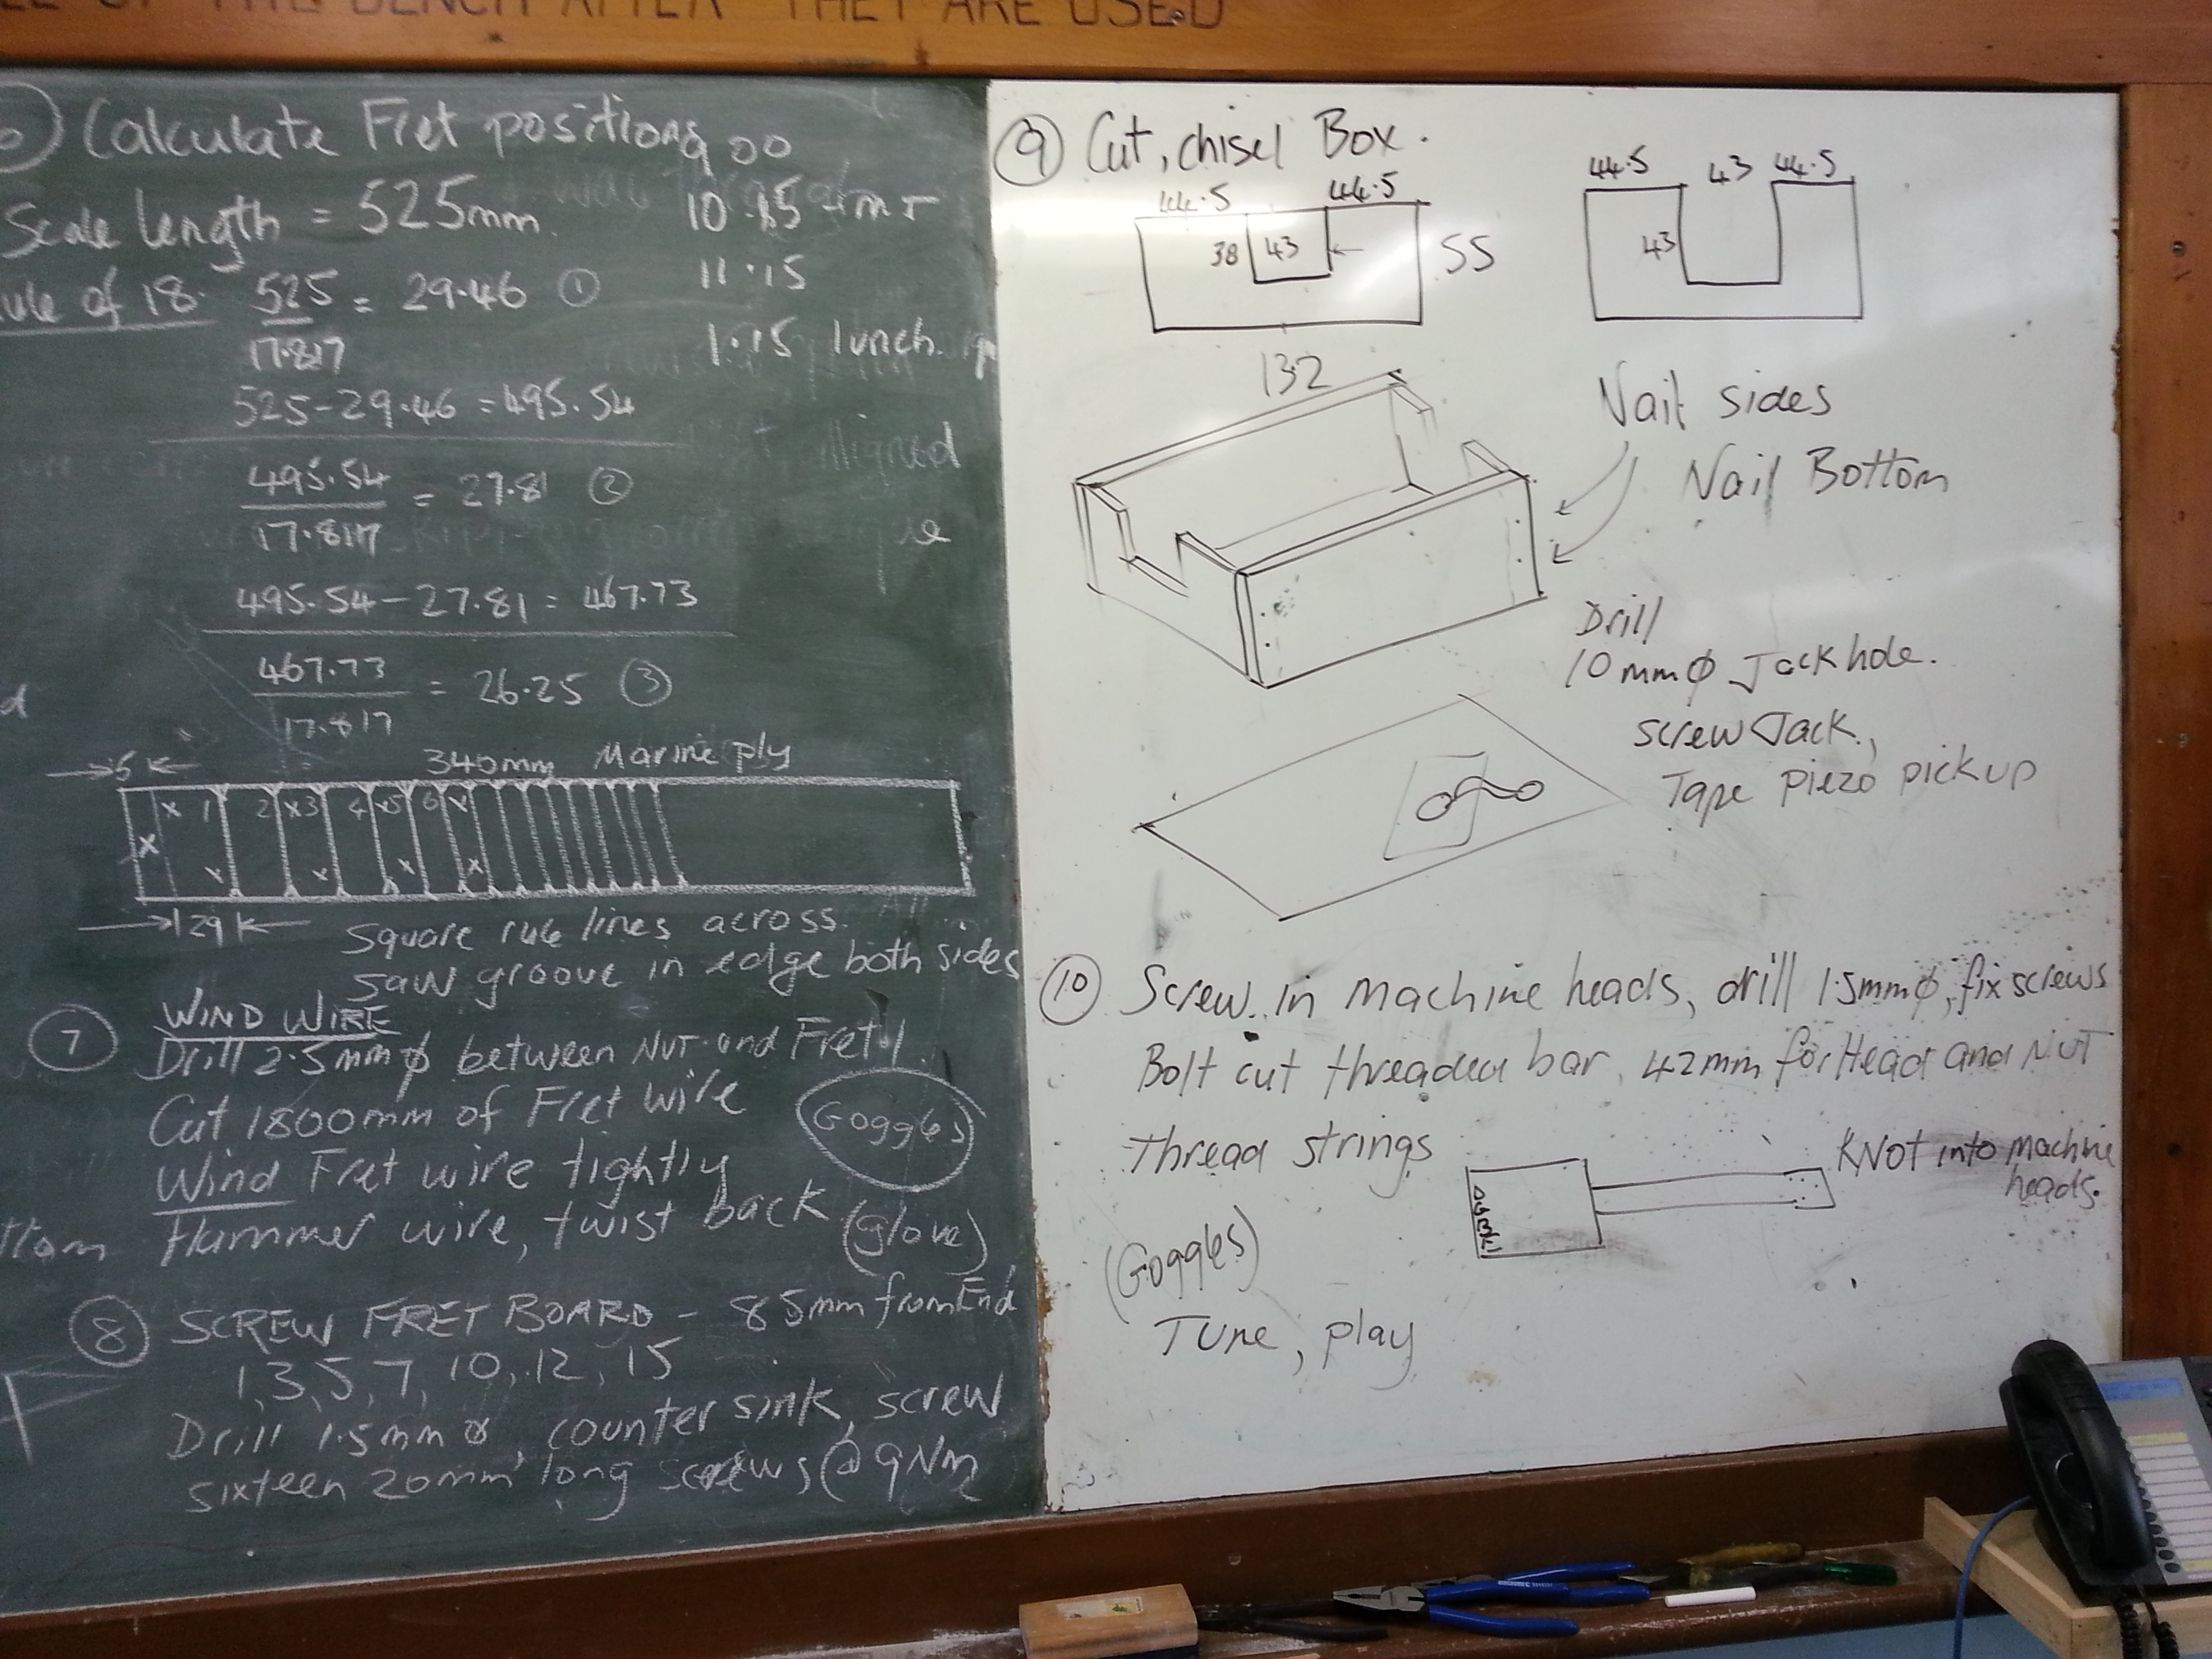 OF THE BENCH AFTER THEY ARE USED
Calculate Fret positions
Scale length = 525mm.
Rule of 18. 525 = 29.46 ①
17.817
525-29.46 = 495.54
495.54 = 27.81 ②
17.817
495.54-27.81 = 467.73
467.73 = 26.25 ③
17.817
11.15
1.15 lunch.
alligned
5 340mm Marine ply
x 1 2 x3 4 x5 6 x
x x x x x
29
Square rule lines across.
Saw groove in edge both sides
7 WIND WIRE
Drill 2.5mmφ between NUT and Fret 1.
Cut 1800mm of Fret wire
Goggles
Wind Fret wire tightly
Hammer wire, twist back (glove)
8 SCREW FRET BOARD - 85mm from End
1, 3, 5, 7, 10, 12, 15
Drill 1.5mmφ, counter sink, screw
sixteen 20mm long screws @ 9Nm
9 Cut, chisel Box.
44.5 44.5
38 43 55
132
44.5 43 44.5
43
Nail sides
Nail Bottom
Drill
10mmφ Jack hole.
screw Jack.,
Tape piezo pickup
10 Screw in machine heads, drill 1.5mmφ, fix screws
Bolt cut threaded bar 42mm for Head and NUT
Thread strings
KNot into machine
heads.
(Goggles)
Tune, play